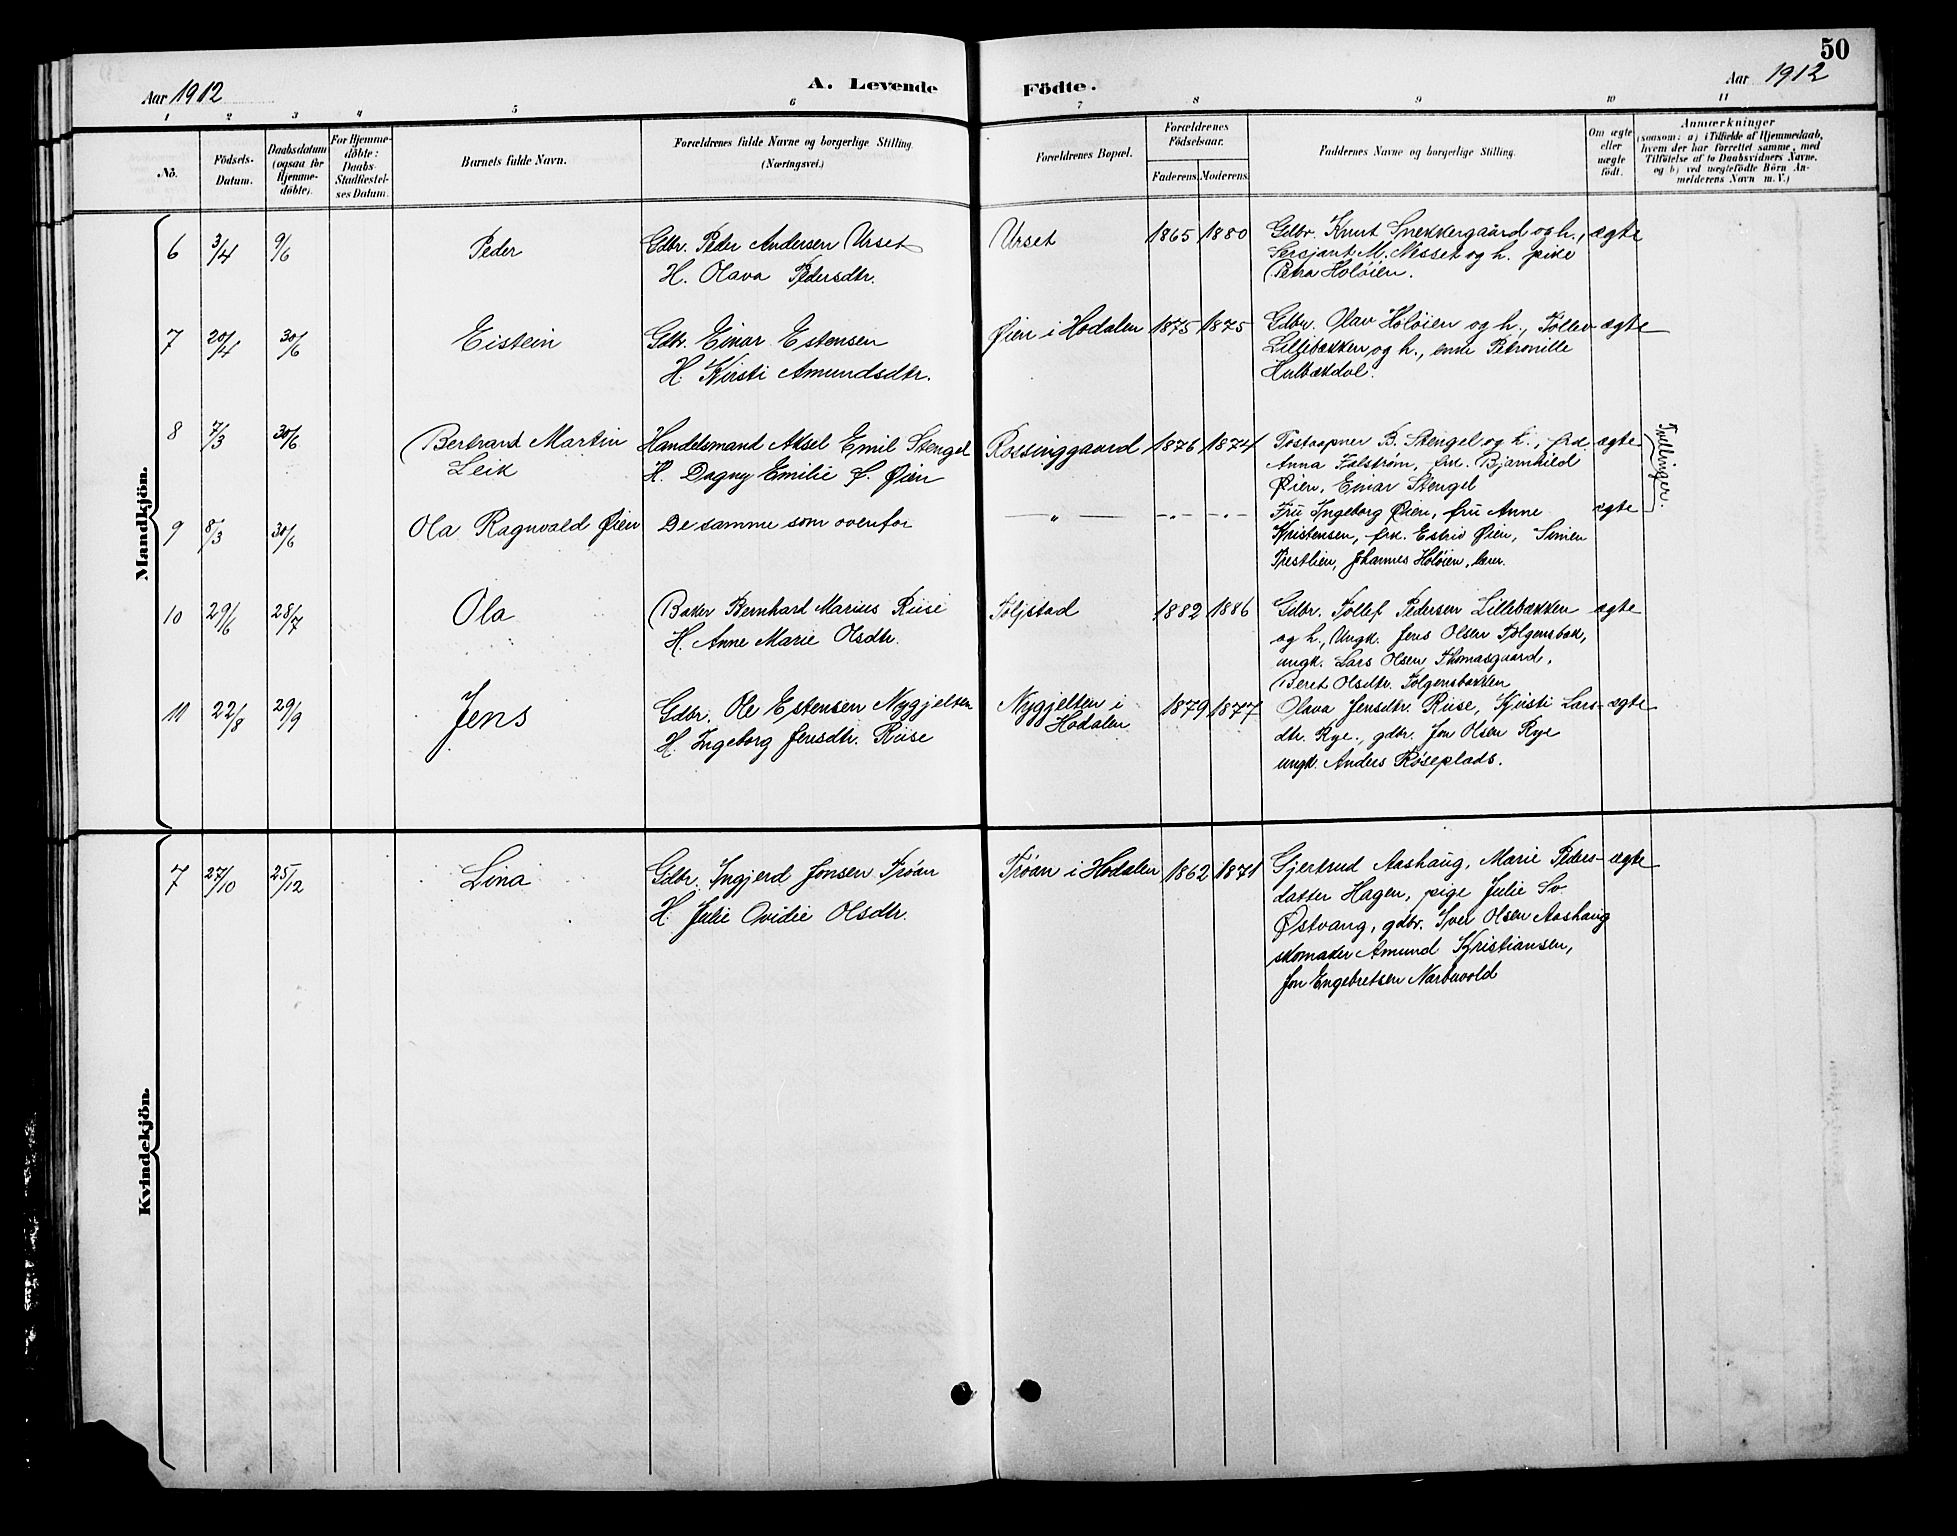 50
Aar 1912
A. Levende
Födte.
Aar 1912
1 2 3 4 5 6 7 8 9 10 11
No.
Födsels-
Datum.
Daabsdatum
(ogsaa for
Hjemme-
döbte).
For Hjemme-
döbte:
Daabs-
Stadfæstel-
ses Datum.
Barnets fulde Navn.
Forældrenes fulde Navne og borgerlige Stilling.
(Næringsvei.)
Forældrenes Bopæl.
Forældrenes
Födselsaar.
Faderens. Moderens.
Faddernes Navne og borgerlige Stilling.
Om ægte
eller
uægte
födt.
Anmærkninger
(saasom: a) i Tilfælde af Hjemmedaab,
hvem der har forrettet samme, med
Tilföielse af to Daabsvidners Navne.
og b) ved uægtefödte Börn An-
melderens Navn m. V.)
Mandkjön.
6 3/4 9/6 Peder
Gdbr. Peder Andersen Urset
H. Olava Pedersdtr.
Urset 1865 1880
Gdbr. Knut Snekkergaard og h.,
Sersjant M. Nesset og h. pike
Petra Holöien.
ægte
7 20/4 30/6 Eistein
Gdbr. Einar Estensen
H. Kirsti Amundsdtr.
Øien i Hodalen 1875 1875
Gdbr. Olav Holöien og h., Tollev
Lillebækken og h., enke Petronille
Hulbækdal.
ægte
8 7/3 30/6 Bertrand Martin
Leik
Handelsmand Aksel Emil Stengel
H. Dagny Emilie f. Øien
Rossinggaard 1876 1874
Postaapner B. Stengel og h., frk.
Anna Falstrøm, frk. Bjarnhild
Øien, Einar Stengel
ægte
Tvillinger.
9 8/3 30/6 Ola Ragnvald Øien
De samme som ovenfor
— „ — -.- -.-
Fru Ingeborg Øien, fru Anne
Kristensen, frk. Estrid Øien, Simen
Prestlien, Johannes Holøien, lærer.
ægte
10 29/6 28/7 Ola
Baker Bernhard Marius Riise
H. Anne Marie Olsdtr.
1882 1886
Gdbr. Tollef Pedersen Lillebækken
og h., Ungk. Jens Olsen Tolgensbak,
ungk. Lars Olsen Thomasgaard,
Beret Olsdtr. Tolgensbakken
ægte
11 22/8 29/9 Jens
Gdbr. Ole Estensen Nygjelten
H. Ingeborg Jensdtr. Riise
Nygjelten i
Hodalen
1879 1877
Olava Jensdtr. Riise, Kjirsti Lars-
dtr. Rye, gdbr. Jon Olsen Rye
ungk. Anders Røseplads.
ægte
Kvindekjön.
7 27/10 25/12 Lina
Gdbr. Ingjerd Jonsen Trøan
H. Julie Ovidie Olsdtr.
Trøan i Hodalen 1862 1871
Gjertrud Aashaug, Marie Peders-
datter Hagen, pige Julie Sv.
Østvang, gdbr. Iver Olsen Aashaug
skomaker Amund Kristiansen,
Jon Engebretsen Narbuvold
ægte